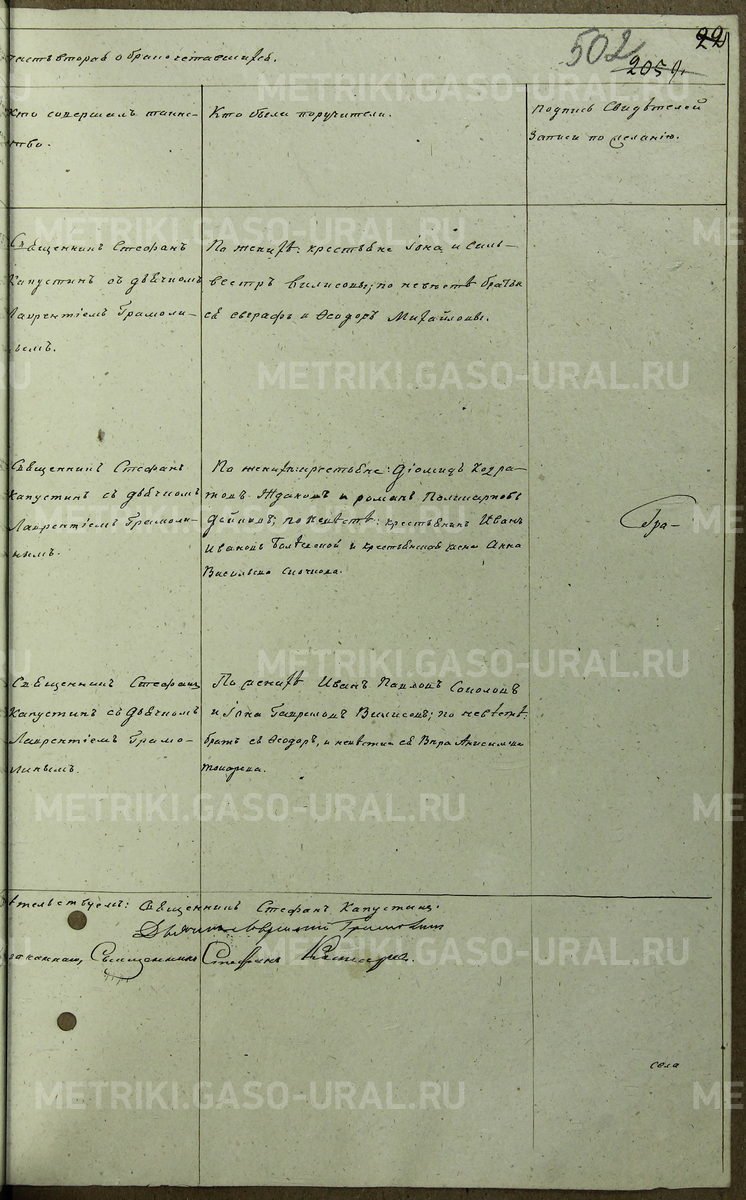 22
502
205 9.
часть вторая о бракосочетавшихся.
Кто совершалъ таин-
ство.
Кто были поручители.
Подпись Свидѣтелей
Записи по желанію.
Священникъ Стефанъ
Капустинъ съ дьячкомъ
Лаврентіемъ Грамоли-
нымъ.
По женихѣ: крестьяне Іона и Силь-
вестръ Вилисовы; по невѣстѣ братья
ея Евграфъ и Ѳеодоръ Михайловы.
Священникъ Стефанъ
Капустинъ съ дьячкомъ
Лаврентіемъ Грамоли-
нымъ.
По женихѣ: крестьяне: Діомидъ
и Романъ
по невѣстѣ: крестьянинъ Иванъ
Ивановъ и крестьянская жена Анна
Васильева
Гра-
Священникъ Стефанъ
Капустинъ съ дьячкомъ
Лаврентіемъ Грамо-
линымъ.
По женихѣ Иванъ Павловъ Соколовъ
и Іона Гавриловъ Вилисовъ; по невѣстѣ
братъ ея Ѳеодоръ, и невѣстка ея Вѣра Анисимова
Токарева.
тельствуемъ: Священникъ Стефанъ Капустинъ.
Дьячекъ Лаврентій Грамолинъ
Священникъ Стефанъ Капустинъ.
села
METRIKI.GASO-URAL.RU